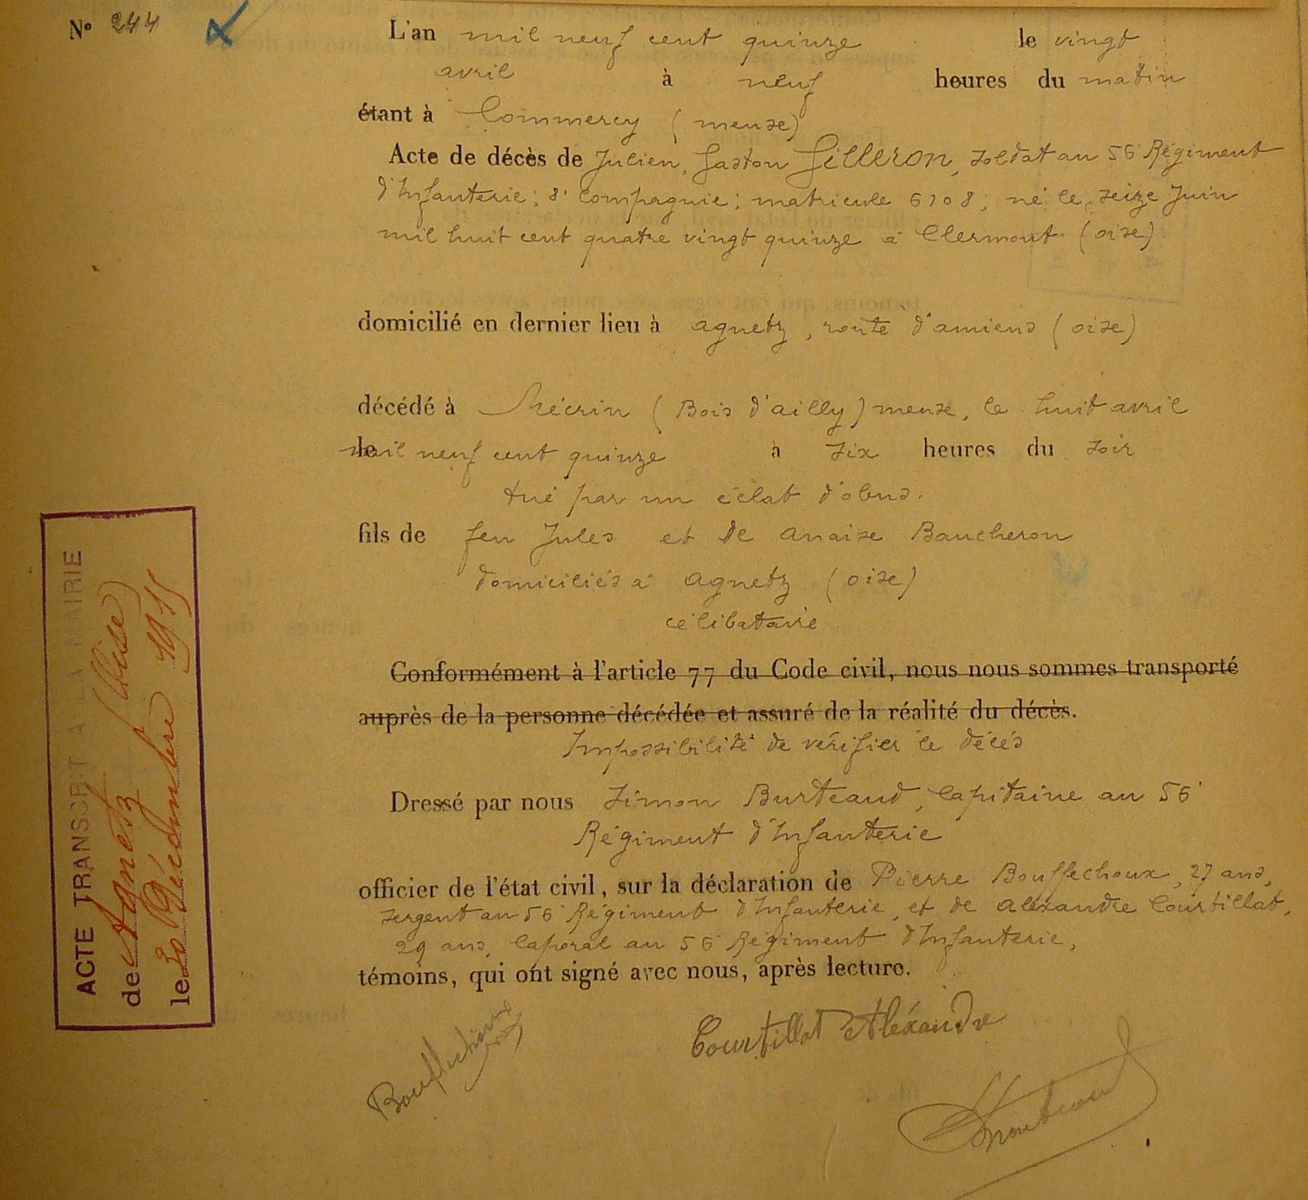 N° 244
L'an mil neuf cent quinze le vingt
avril à neuf heures du matin
étant à Commercy (meuse)
Acte de décès de Julien, Gaston Gilleron, soldat au 56e Régiment
d'Infanterie; 8e Compagnie; matricule 6108; né le seize Juin
mil huit cent quatre vingt quinze à Clermont (oise)
domicilié en dernier lieu à agnetz, route d'amiens (oise)
décédé à Mécrin (Bois d'ailly) meuse, le huit avril
le mil neuf cent quinze à six heures du soir
tué par un éclat d'obus.
fils de feu Jules et de anaise Baucheron
domiciliés à agnetz (oise)
célibataire
Conformément à l'article 77 du Code civil, nous nous sommes transporté
auprès de la personne décédée et assuré de la réalité du décès.
Impossibilité de vérifier le décès
Dressé par nous Simon Burteaud, Capitaine au 56e
Régiment d'Infanterie
officier de l'état civil, sur la déclaration de Pierre Bouffechoux, 27 ans,
sergent au 56e Régiment d'Infanterie, et de alexandre Courtillat,
29 ans, Caporal au 56e Régiment d'Infanterie,
témoins, qui ont signé avec nous, après lecture.
Bouffechoux
Courtillat Alexandre
ACTE TRANSCRIT A LA MAIRIE
de Agnetz (Oise)
le 30 Décembre 1915